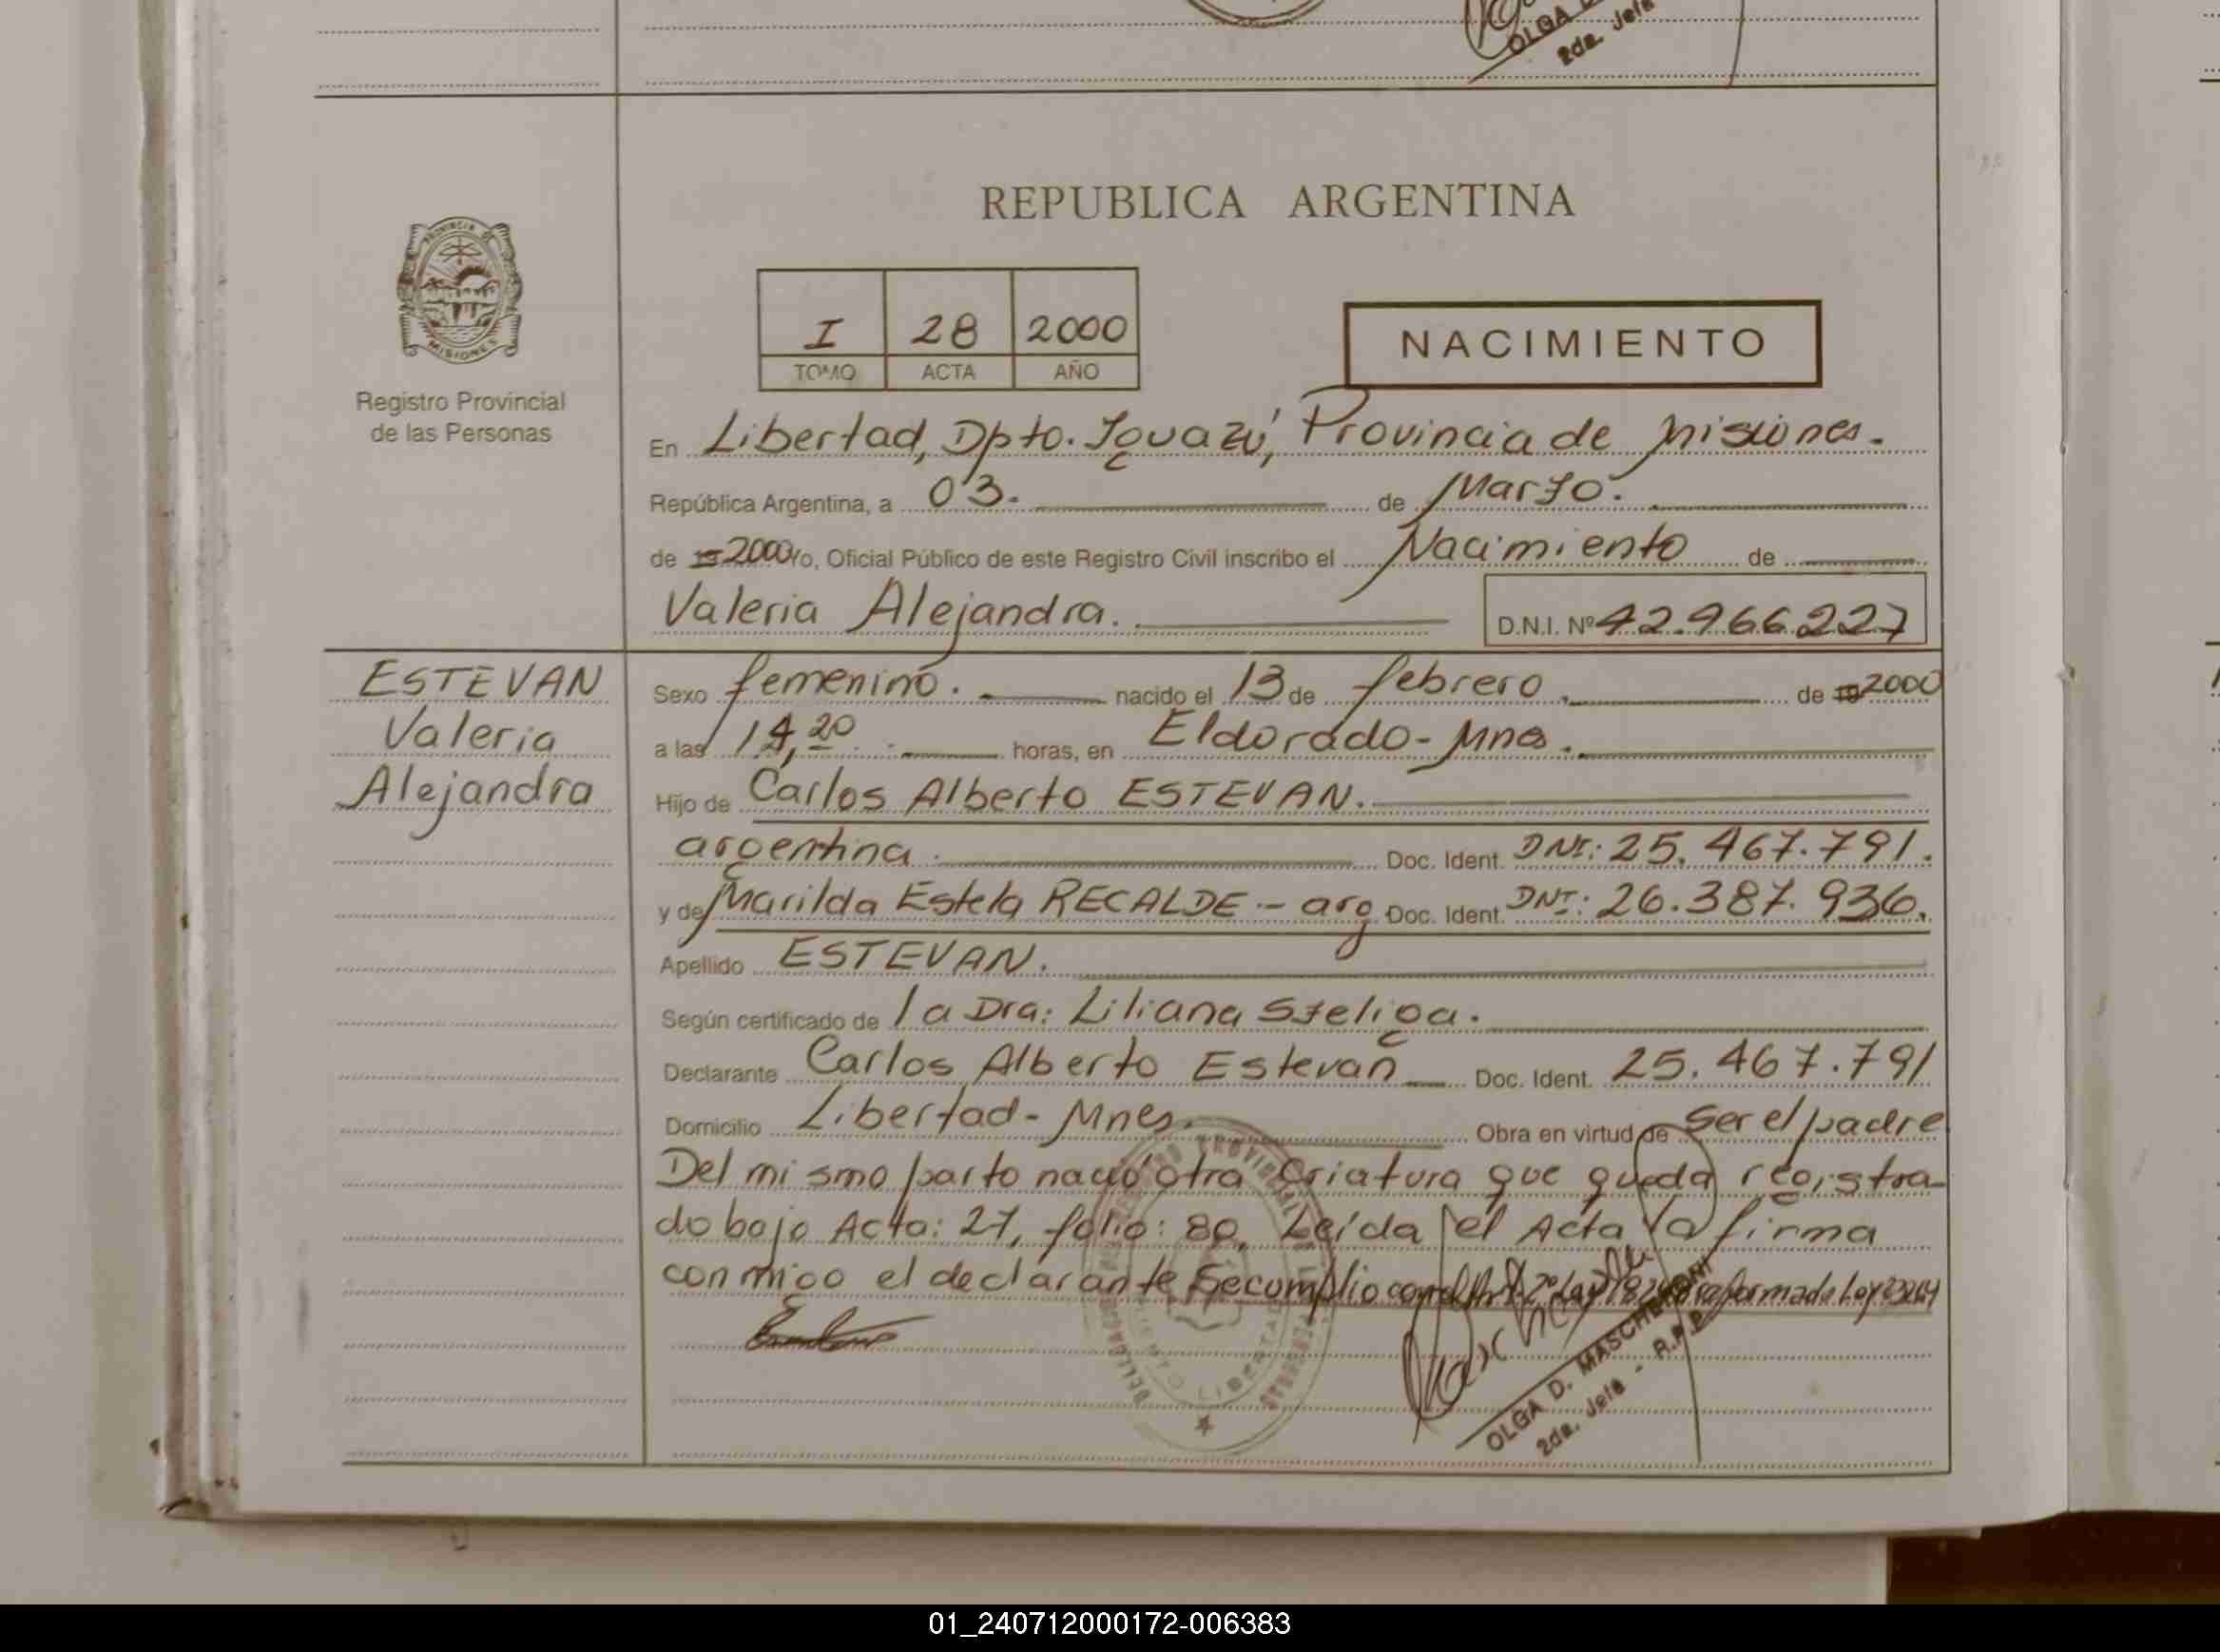 OLGA D.
2da. Jefe
REPUBLICA ARGENTINA
PROVINCIA DE
MISIONES
Registro Provincial
de las Personas
I 28 2000
TOMO ACTA AÑO
NACIMIENTO
En Libertad, Dpto. Iguazú, Provincia de Misiones.
República Argentina, a 03. de Marzo.
de 19 2000 Yo, Oficial Público de este Registro Civil inscribo el Nacimiento de
Valeria Alejandra. D.N.I. Nº 42.966.227
ESTEVAN
Valeria
Alejandra
Sexo femenino. nacido el 13 de febrero. de 19 2000
a las 14,20 horas, en Eldorado - Mnes.
Hijo de Carlos Alberto ESTEVAN.
argentina. Doc. Ident. DNI: 25.467.791.
y de Marilda Estela RECALDE - arg Doc. Ident. DNI: 26.387.936.
Apellido ESTEVAN.
Según certificado de la Dra: Liliana Szeliga.
Declarante Carlos Alberto Estevan Doc. Ident. 25.467.791
Domicilio Libertad - Mnes. Obra en virtud de Ser el padre
Del mismo parto nació otra criatura que queda registra-
do bajo Acta: 27, folio: 80. Leída el Acta la firma
conmigo el declarante Se cumplio con el Art. 2º Ley 18248 reformado Ley 23264
OLGA D. MASCHERONI
2da. Jefe - R.P.P.
LIBERTAD
01_240712000172-006383